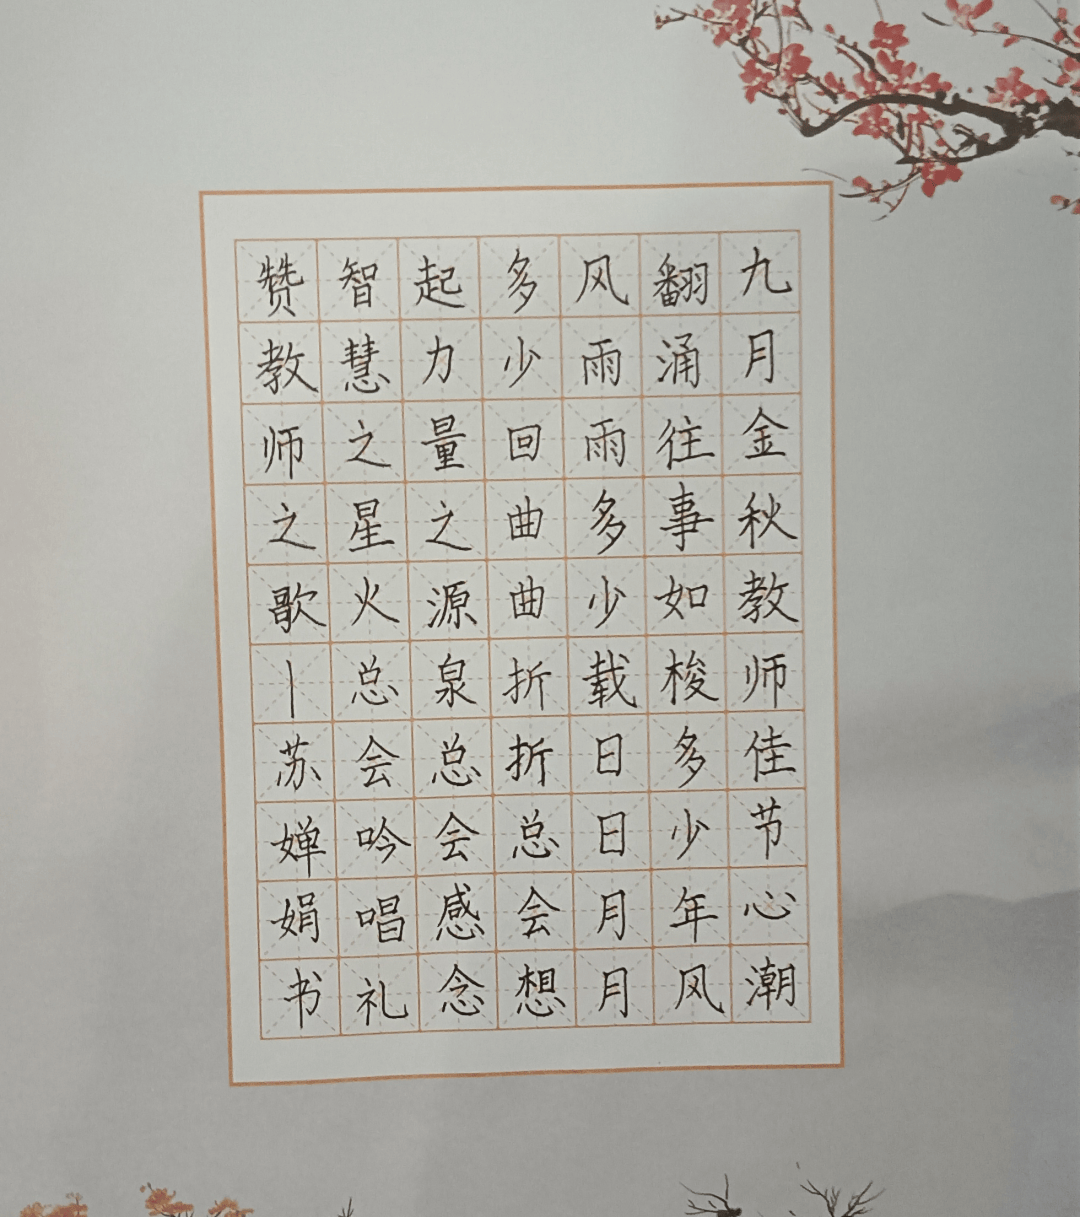 九月金秋教师佳节心潮
翻涌往事如梭多少年风
风雨雨多少载日日月月
多少回曲曲折折总会想
起力量之源泉总会感念
智慧之星火总会吟唱礼
赞教师之歌丨苏婵娟书